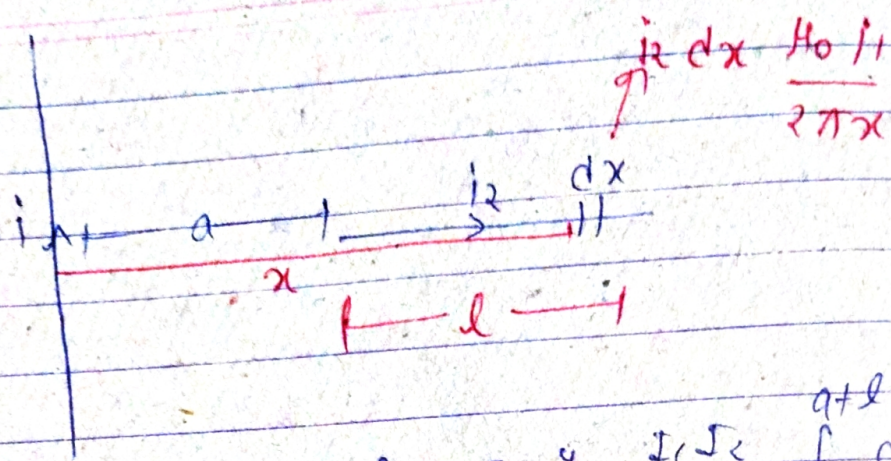 i₂ dx μ₀ i₁
2πx
i₂ dx
i a
x
l
a+l
I₁I₂ ∫